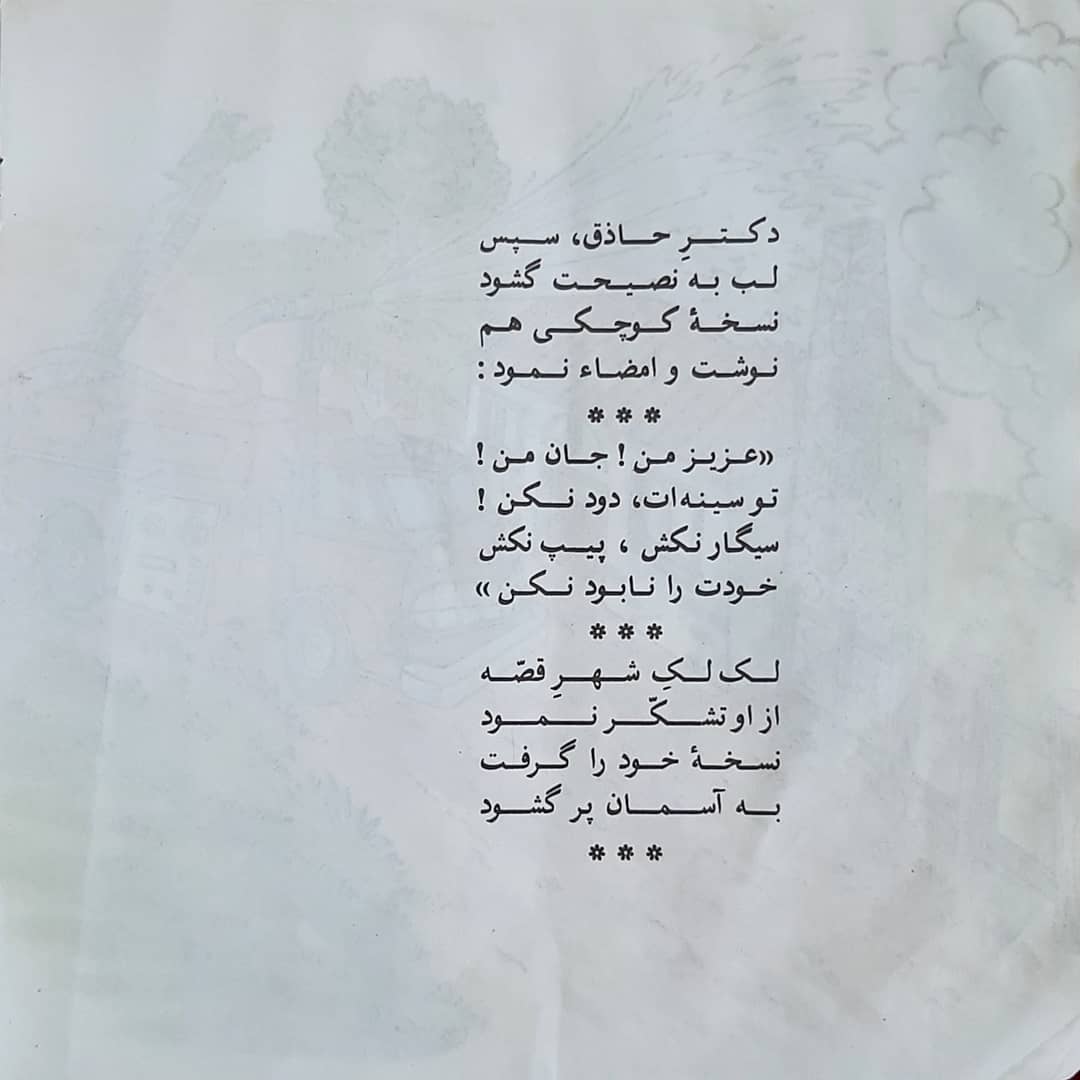 دکترِ حاذق، سپس
لب به نصیحت گشود
نسخهٔ کوچکی هم
نوشت و امضاء نمود:
* * *
«عزیز من! جان من!
تو سینه‌ات، دود نکن!
سیگار نکش، پیپ نکش
خودت را نابود نکن»
* * *
لک لکِ شهرِ قصّه
از او تشکّر نمود
نسخهٔ خود را گرفت
به آسمان پر گشود
* * *